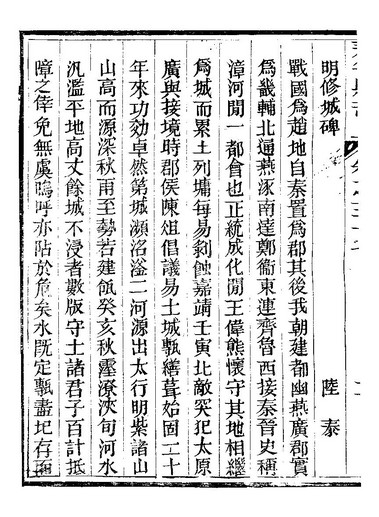 明修城碑　陸泰
戰國為趙地自秦置為郡其後我朝建都幽燕廣郡實
為畿輔北通燕涿南達鄭衞東連齊魯西接秦晉史稱
漳河閒一都會也正統成化閒王偉熊懷守其地相繼
為城而累土列墉每易剝蝕嘉靖壬寅北敵突犯太原
廣與接境時郡侯陳俎倡議易土城甎繕葺始固二十
年來功効卓然第城瀕洺溢二河源出太行明紫諸山
山高而源深秋雨至勢若建瓴癸亥秋霪潦浹旬河水
汎濫平地高丈餘城不浸者數版守土諸君子百計抵
障之倖免無虞嗚呼亦阽於危矣水既定甎盡圮存面